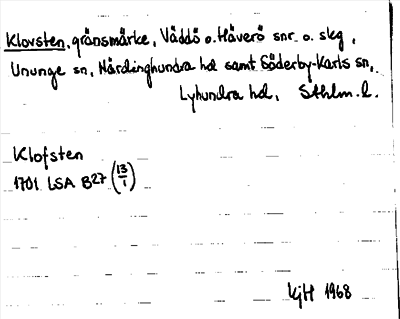 Klovsten, gränsmärke, Väddö o. Häverö snr o. skg,
Ununge sn, Närdinghundra hd samt Söderby-Karls sn,
Lyhundra hd, Sthlm. l.
Klofsten
1701 LSA B27 (13/1)
KjH 1968